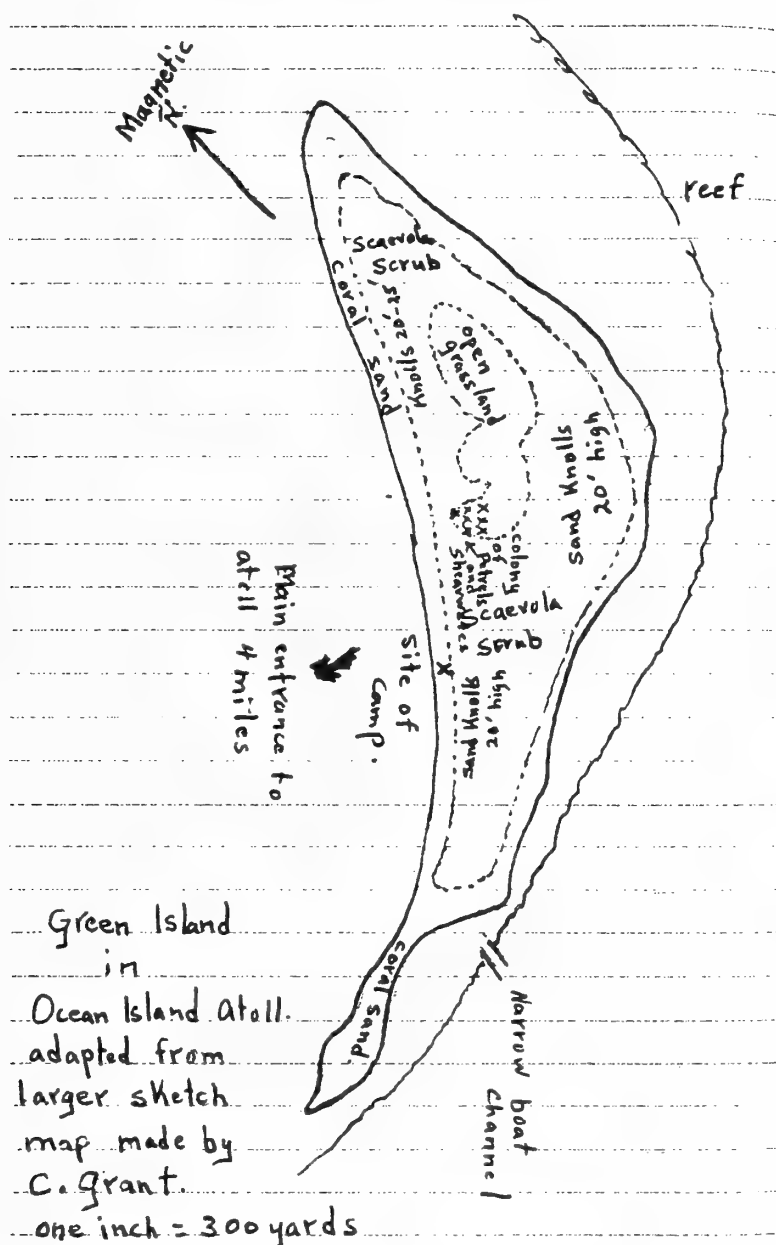 Magnetic
N.
reef
Scaevola
Scrub
coral sand
Knolls 20'-25'
open
grassland
20' high
sand Knolls
colony
of
Petrels
and
Shearwaters
xxx
Scaevola
scrub
20' high
sand Knolls
x
site of
camp.
Main entrance to
atoll 4 miles
coral sand
Narrow boat
channel
Green Island
in
Ocean Island atoll.
adapted from
larger sketch
map made by
C. Grant.
one inch = 300 yards